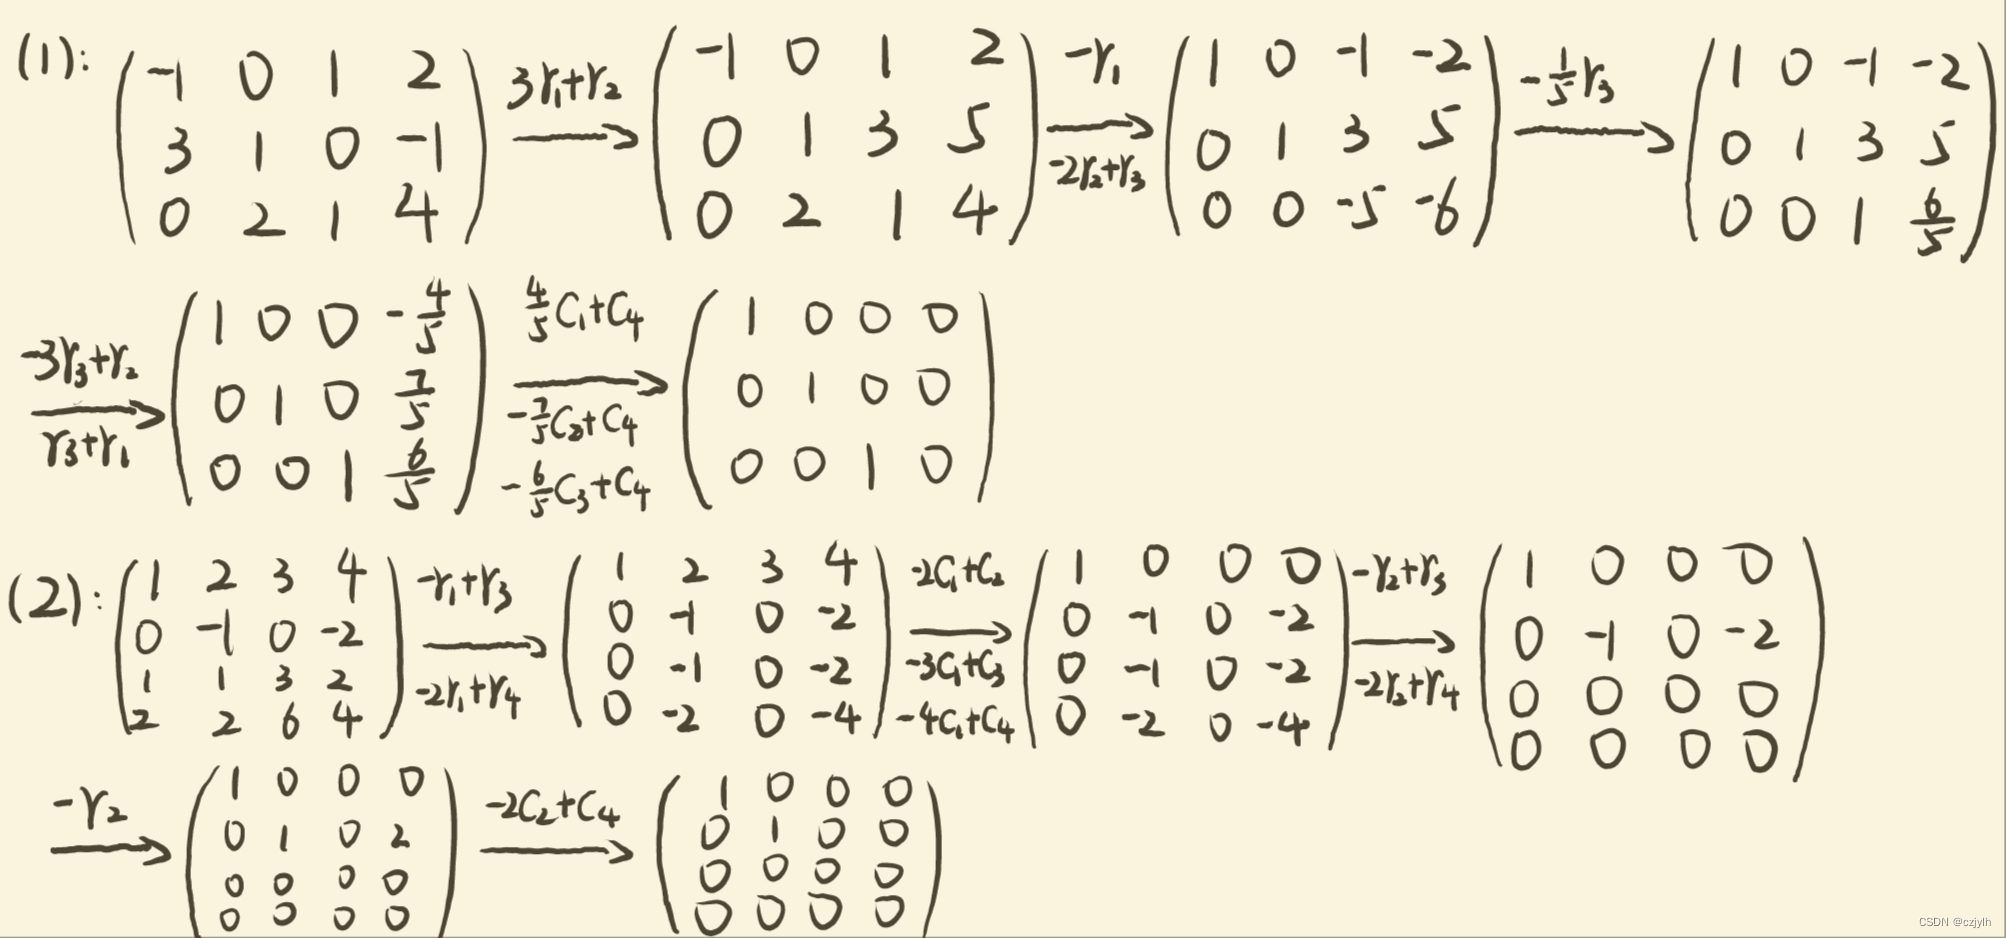 (1): (-1 0 1 2; 3 1 0 -1; 0 2 1 4) 3r₁+r₂ → (-1 0 1 2; 0 1 3 5; 0 2 1 4) -r₁ → -2r₂+r₃ (1 0 -1 -2; 0 1 3 5; 0 0 -5 -6) -1/5 r₃ → (1 0 -1 -2; 0 1 3 5; 0 0 1 6/5)
-3r₃+r₂ → r₃+r₁ (1 0 0 -4/5; 0 1 0 7/5; 0 0 1 6/5) 4/5 C₁+C₄ → -7/5 C₂+C₄ -6/5 C₃+C₄ (1 0 0 0; 0 1 0 0; 0 0 1 0)
(2): (1 2 3 4; 0 -1 0 -2; 1 1 3 2; 2 2 6 4) -r₁+r₃ → -2r₁+r₄ (1 2 3 4; 0 -1 0 -2; 0 -1 0 -2; 0 -2 0 -4) -2C₁+C₂ → -3C₁+C₃ -4C₁+C₄ (1 0 0 0; 0 -1 0 -2; 0 -1 0 -2; 0 -2 0 -4) -r₂+r₃ → -2r₂+r₄ (1 0 0 0; 0 -1 0 -2; 0 0 0 0; 0 0 0 0)
-r₂ → (1 0 0 0; 0 1 0 2; 0 0 0 0; 0 0 0 0) -2C₂+C₄ → (1 0 0 0; 0 1 0 0; 0 0 0 0; 0 0 0 0)
CSDN @czjylh